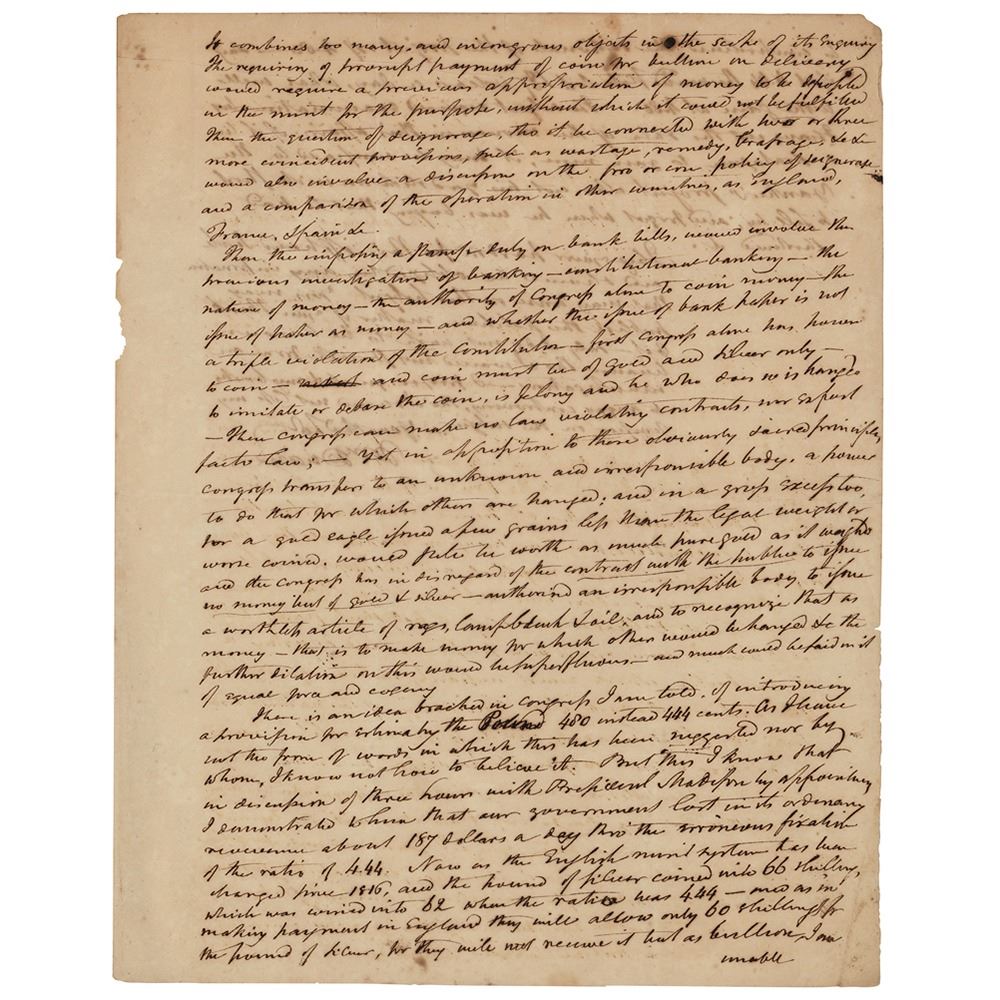 It combines too many, and incongrous objects in the scope of its Enquiry
The requiring of prompt payment of coin for bullion on delivery
would require a previous appropriation of money to be
in the mint for the purpose, without which it could not be fulfilled
Then the question of seignorage, tho it be connected with two or three
more coincident provisions, such as wastage, remedy, brassage, &c &c
would also involve a discussion on the pro or con policy of seignorage
and a comparison of the operation in other countries, as England,
France, Spain &c.
Then the imposing a stamp duty on bank bills, would involve the
previous investigation of banking — constitutional banking — the
nature of money — the authority of Congress alone to coin money — the
issue of paper as money — and whether the issue of bank paper is not
a triple violation of the Constitution — first congress alone has power
to coin — and coin must be of gold and silver only —
to imitate or debase the coin, is felony and he who does so is hanged
— Then congress can make no law violating contracts, nor Expost
facto law; — yet in opposition to these obviously sacred principles,
congress transfers to an unknown and irresponsible body, a power
to do that for which others are hanged; and in a gross Excess too,
for a gold eagle issued a few grains less than the legal weight or
worse coined, would still be worth as much pure gold as it weighs
and the Congress has in disregard of the contract with the public to issue
no money but of gold & silver — authorised an irresponsible body to issue
a worthless article of rags, Lampblack & oil, and to recognize that as
money — that is to make money for which others would be hanged &c the
further dilation on this would be superfluous — and much could be said on it
of equal force and cogency
There is an idea broached in Congress I am told, of introducing
a provision for Estimaby the Pound 480 instead 444 cents. As I have
not the form of words in which this has been suggested nor by
whom, I know not how to believe it. But this I know that
in discussion of three hours with President Madison by appointment
I demonstrated to him that our government lost in its ordinary
revenue about 187 dollars a day thro the erroneous fixation
of the ratio of 4.44. Now as the English mint system has been
changed since 1816, and the pound of silver coined into 66 shillings,
which was coined into 62 when the ratio was 4.44 — and as in
making payment in England they will allow only 60 shillings for
the pound of silver, for they will not receive it but as bullion, I am
unable